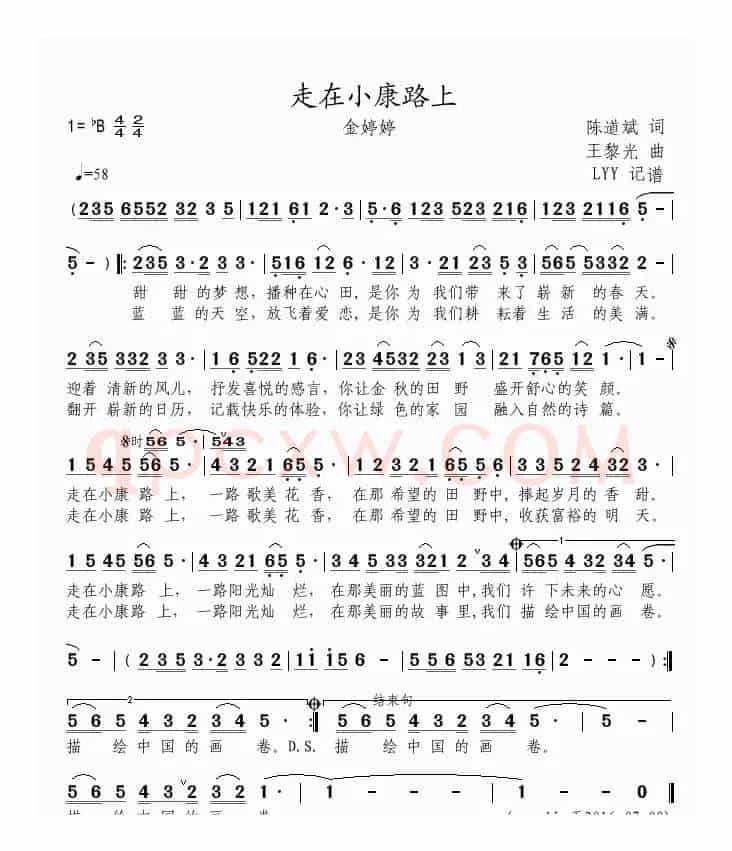 走在小康路上
1= ♭B 4/4 2/4 金婷婷 陈道斌 词
王黎光 曲
♩=58 LYY 记谱
( 235 6552 32 3 5 | 121 61 2·3 | 5·6 123 523 216 | 123 2116 5 - |
5 - ) ‖: 235 3·2 3 3· | 516 12 1· | 3·21 23 5 3 | 565 5332 2 - |
甜 甜的梦想，播种在心田，是你为 我们带 来了崭 新的春天。
蓝 蓝的天空，放飞着爱恋，是你为 我们耕 耘着生 活的美满。
2 35 332 3· | 1 6 522 1 6· | 23 4532 23 1 3 | 21 765 12 1· | 1 -
迎着 清新的风儿，抒发喜悦的感言，你让金 秋的田 野 盛开舒心的笑 颜。
翻开 崭新的日历，记载快乐的体验，你让绿 色的家 园 融入自然的诗 篇。
时 56 5· 543
1 5 4 5 56 5· | 4 3 2 1 65 5· | 1 2 3 2 1 65 5 6 | 3 5 2 4 32 3·
走在小康 路 上， 一路 歌美 花 香， 在那 希望的 田 野中，捧起岁月的 香 甜。
走在小康 路 上， 一路 歌美 花 香， 在那 希望的 田 野中，收获富裕的 明 天。
1 5 4 5 56 5· | 4 3 2 1 65 5· | 3 4 5 5 3 321 2 34 | 1 565 4 32 34 5 -
走在小康 路 上， 一路阳光灿 烂， 在那美丽的蓝 图中，我们 许 下未来的心 愿。
走在小康 路 上， 一路阳光灿 烂， 在那美丽的故 事里，我们 描 绘中国的画 卷。
5 - | ( 2 3 5 3·2 3 3· | 1 1 1 5 6 - | 5 5 6 5 3 2 1 2 1 6 | 2 - ) :‖
2 结束句
5 6 5 4 3 2 3 4 5· :‖ 5 6 5 4 3 2 3 4 5· | 5 -
描 绘中国的画 卷。D.S. 描 绘中国的画 卷。
5 6 5 4 3 2 3 4 3 2 | 1 - - - | 1 - - - | 1 - 0
描 绘中国的画 卷。
qpcxw.com